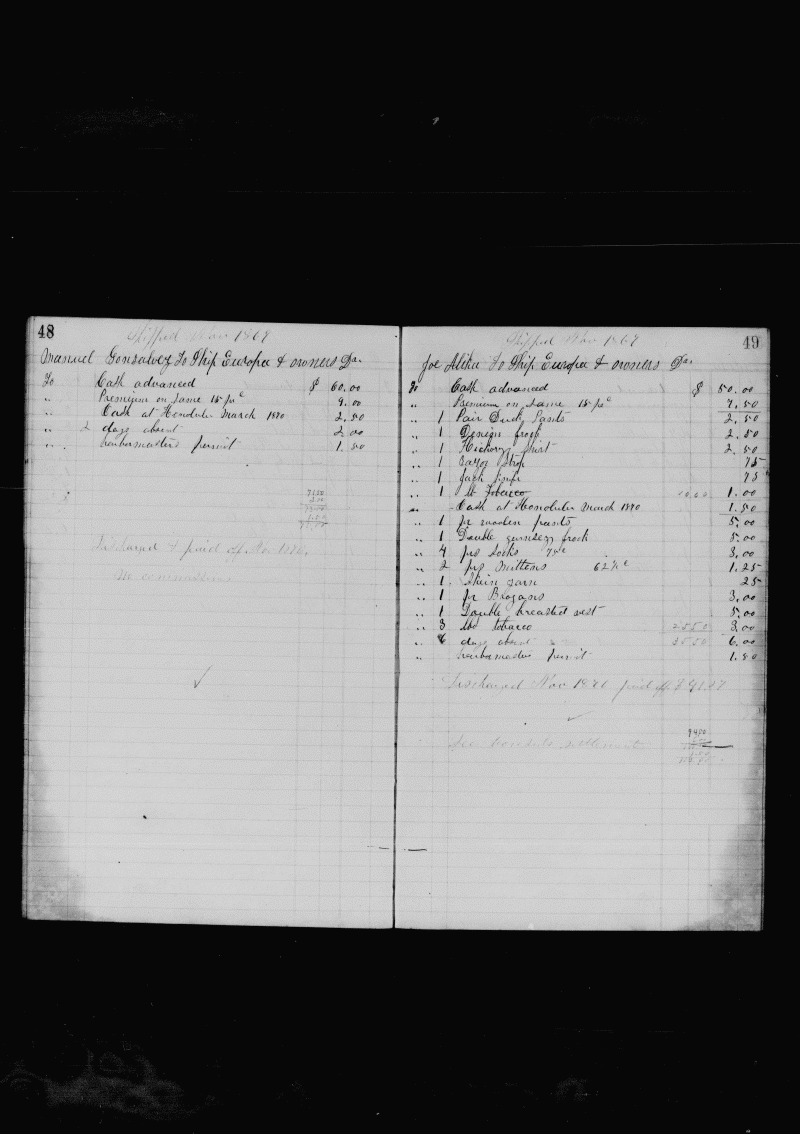 48
Shipped Nov 1869
Manuel Gonsalvez To Ship Europa & owners Dr.
To Cash advanced $ 60.00
" Premium on same 15 prc 9.00
" Cash at Honolulu March 1870 2.50
" 2 days absent 2.00
" harbamasters permit 1.50
Discharged & paid off Nov 1870.
49
Shipped Nov 1869
Joe To Ship Europa & owners Dr.
To Cash advanced $ 50.00
" Premium on same 15 prc 7.50
" 1 Pair Duck Pants 2.50
" 1 Denim frock 2.50
" 1 Hickory Shirt 2.50
" 1 Razor Strop 75
" 1 Jack knife 75
" 1 lb Tobacco 1.00
" Cash at Honolulu March 1870 1.50
" 1 pr woolen pants 5.00
" 1 Double gurnsey frock 5.00
" 4 prs Socks 75c 3.00
" 2 prs Mittens 62½c 1.25
" 1 Skein yarn 25
" 1 pr Brogans 3.00
" 1 Double breasted vest 5.00
" 3 lbs tobacco 25.50 3.00
" 6 days absent 35.50 6.00
" harbamasters permit 1.50
Discharged Nov 1870 paid off $
See Consuls settlement